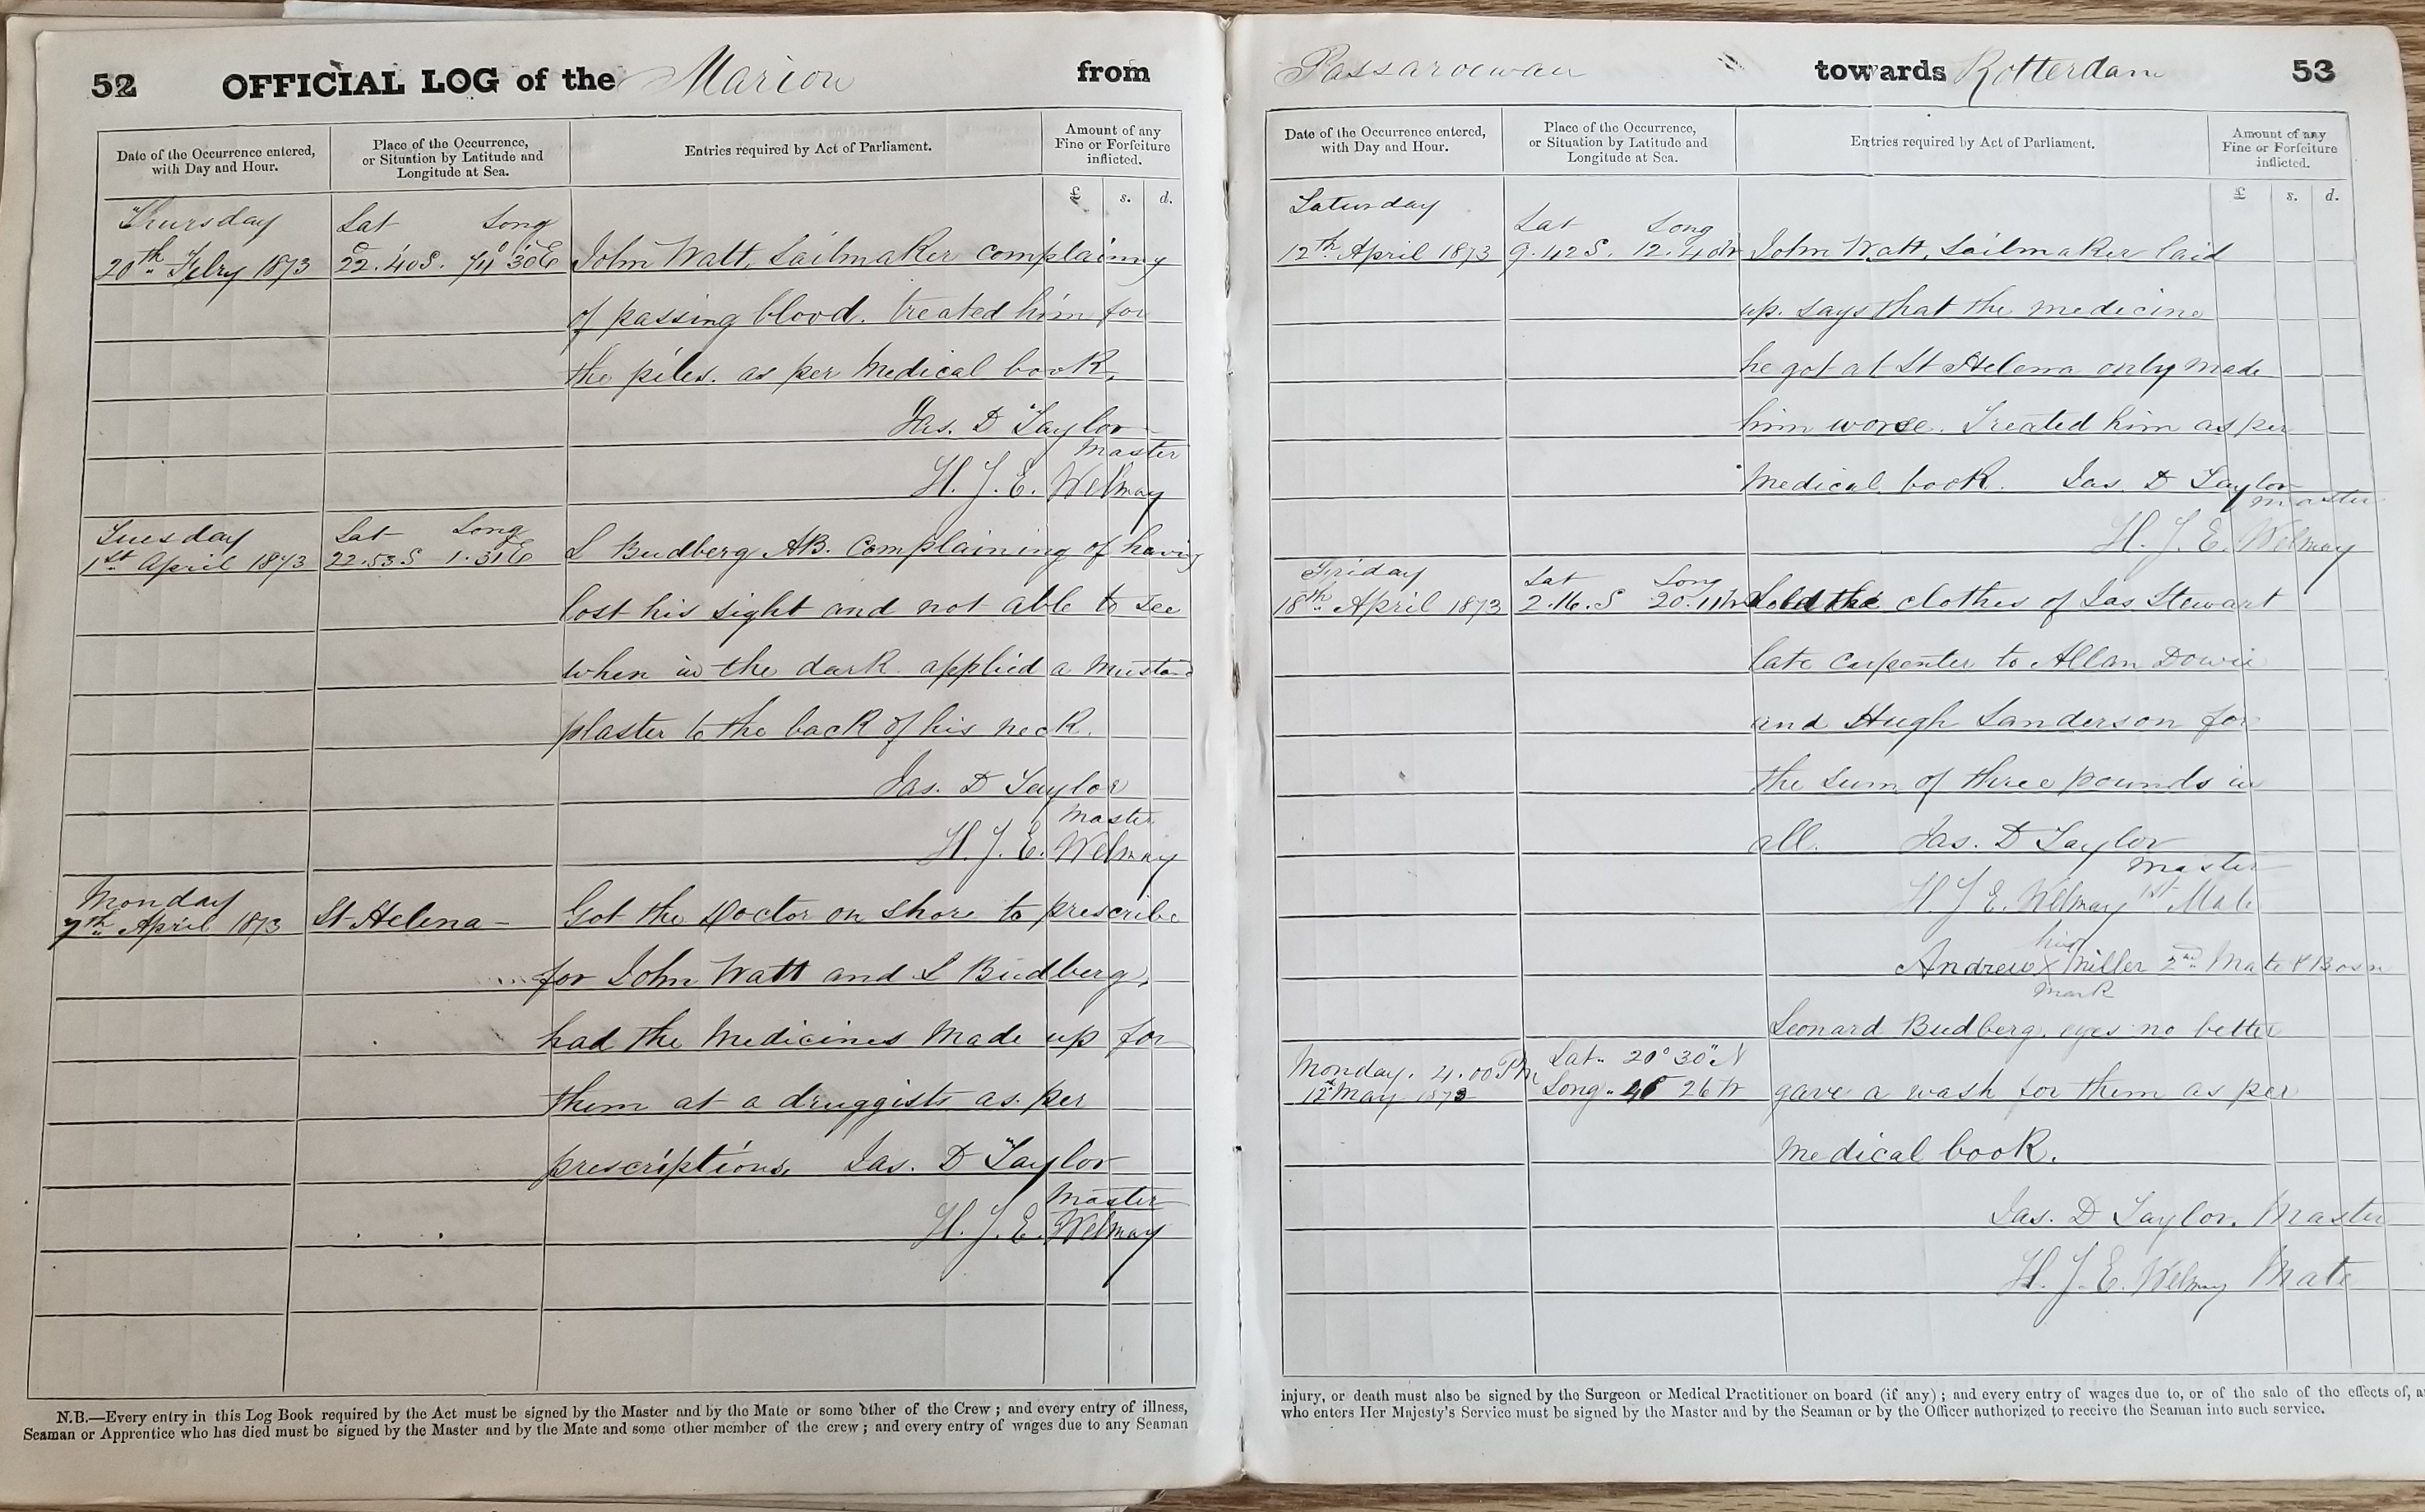 52 OFFICIAL LOG of the Marion from
Date of the Occurrence entered, with Day and Hour.
Place of the Occurrence, or Situation by Latitude and Longitude at Sea.
Entries required by Act of Parliament.
Amount of any Fine or Forfeiture inflicted.
£ s. d.
Thursday Lat Long
20th Febry 1873 22.40S. 74° 30'E John Watt, Sailmaker complaining
of passing blood. treated him for
the piles. as per Medical book.
Jas. D Taylor
Master
H. J. E. Welmay
Tuesday Lat Long
1st April 1873 22.53 S 1.31 E L Budberg AB. Complaining of having
lost his sight and not able to see
when in the dark. applied a Mustard
plaster to the back of his neck.
Jas. D Taylor
Master
H. J. E. Welmay
Monday
7th April 1873 St Helena - Got the Doctor on shore to prescribe
for John Watt and L Budberg,
had the Medicines Made up for
them at a druggists as per
prescriptions, Jas. D Taylor
Master
H. J. E. Welmay
N.B.—Every entry in this Log Book required by the Act must be signed by the Master and by the Mate or some other of the Crew; and every entry of illness,
Seaman or Apprentice who has died must be signed by the Master and by the Mate and some other member of the crew; and every entry of wages due to any Seaman
Passaroewan towards Rotterdam 53
Date of the Occurrence entered, with Day and Hour.
Place of the Occurrence, or Situation by Latitude and Longitude at Sea.
Entries required by Act of Parliament.
Amount of any Fine or Forfeiture inflicted.
£ s. d.
Saturday Lat Long
12th April 1873 9.42 S. 12.40W John Watt, Sailmaker laid
up. says that the medicine
he got at St Helena only made
him worse. Treated him as per
Medical book. Jas. D Taylor
Master
H. J. E. Welmay
Friday Lat Long
18th April 1873 2.16.S 20.11W Sold the clothes of Jas Stewart
late carpenter to Allan Dowie
and Hugh Sanderson for
the sum of three pounds in
all. Jas. D Taylor
Master
H. J. E. Welmay 1st Mate
his
Andrew X Miller 2nd Mate & Bosn
mark
Leonard Budberg. eyes no better
Monday. 4.00 PM Lat. 20° 30" N
12th May 1873 Long. 26 W gave a wash for them as per
Medical book.
Jas. D Taylor. Master
H. J. E. Welmay Mate
injury, or death must also be signed by the Surgeon or Medical Practitioner on board (if any); and every entry of wages due to, or of the sale of the effects of,
who enters Her Majesty's Service must be signed by the Master and by the Seaman or by the Officer authorized to receive the Seaman into such service.